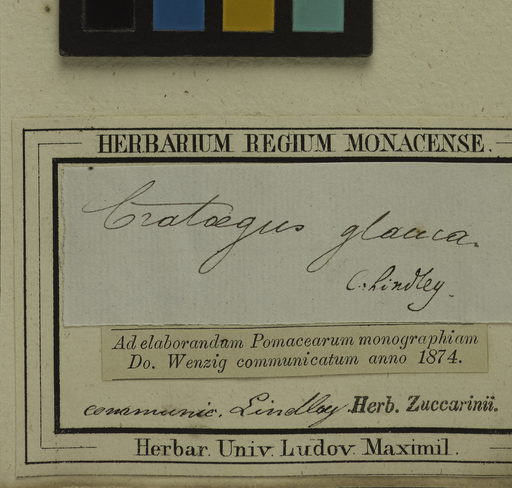 HERBARIUM REGIUM MONACENSE.
Cratægus glauca.
C. Lindley.
Ad elaborandum Pomacearum monographiam
Do. Wenzig communicatum anno 1874.
communic. Lindley. Herb. Zuccarinii.
Herbar. Univ. Ludov. Maximil.